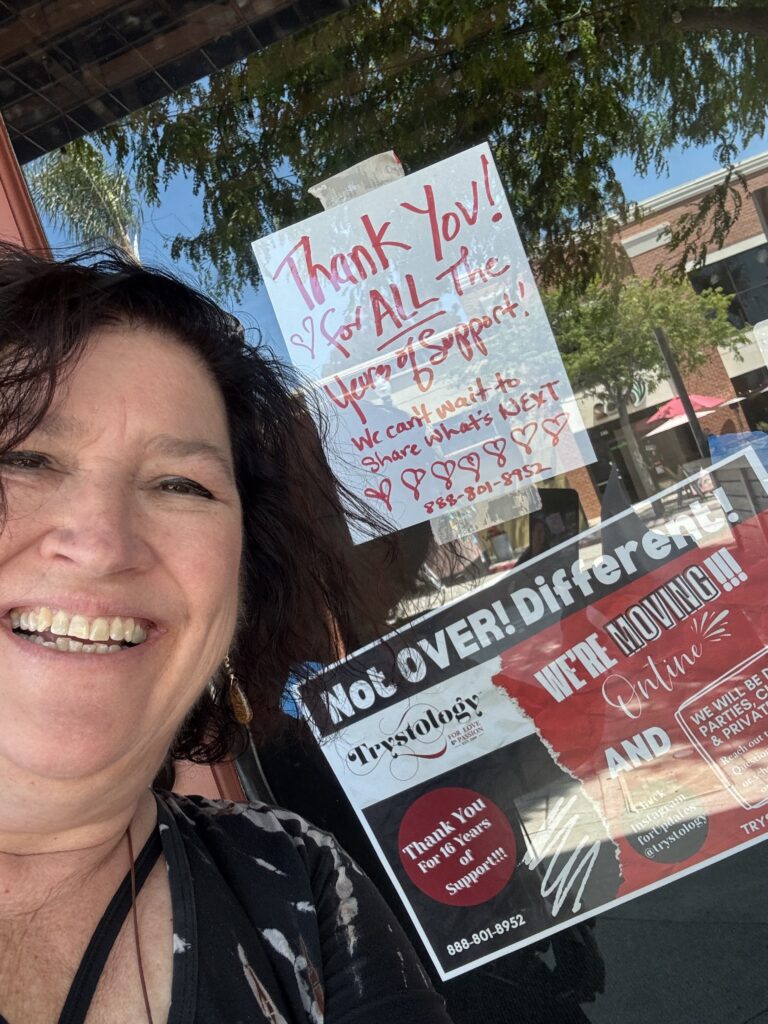 Thank You!
for ALL The
Years of Support!
We can't wait to
Share what's NEXT
888-801-8952
Not OVER! Different!
Trystology
FOR LOVE
& PASSION
WE'RE MOVING!!!
Online
AND
Thank You
For 16 Years
of
Support!!!
888-801-8952
Check
Instagram
for Updates
@trystology
WE WILL BE D
PARTIES, C
& PRIVAT
Reach out
Questio
TRYS